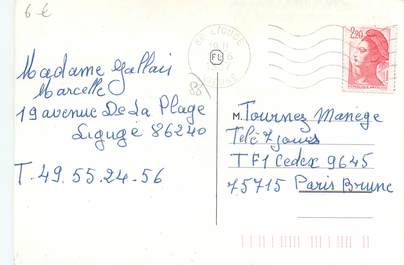 6 €
Madame Gallais
Marcelle
19 avenue De La Plage
Ligugé 86240
T. 49.55.24-56
86 LIGUGE
2,20
M. Tournez Manège
Télé 7 jours
TF1 Cedex 9645
75715 Paris Brune